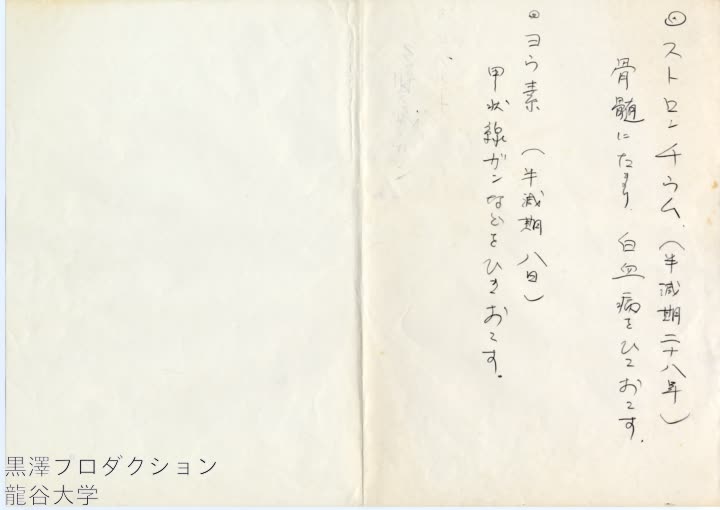 ◎ストロンチウム(半減期二十八年)
骨髄にたまり、白血病をひきおこす。
◎ヨウ素(半減期八日)
甲状線ガンなどをひきおこす。
黒澤フロダクション
龍谷大学